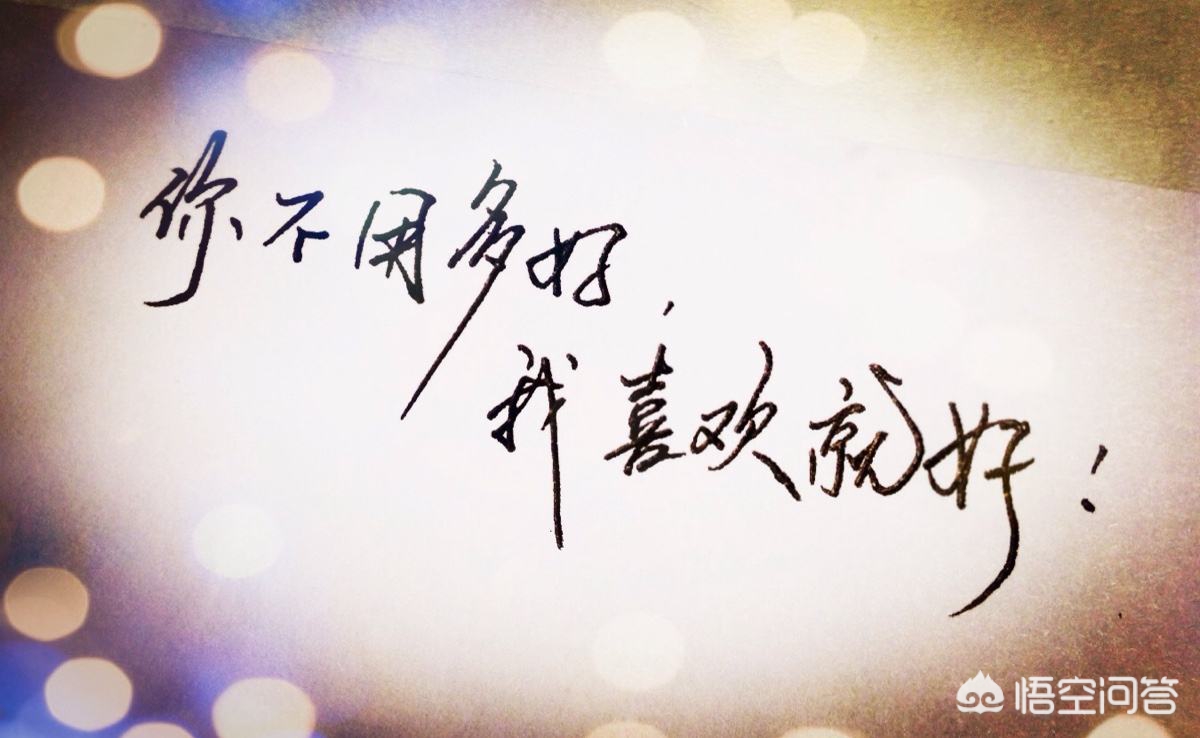 你不用多好，
我喜欢就好！
悟空问答